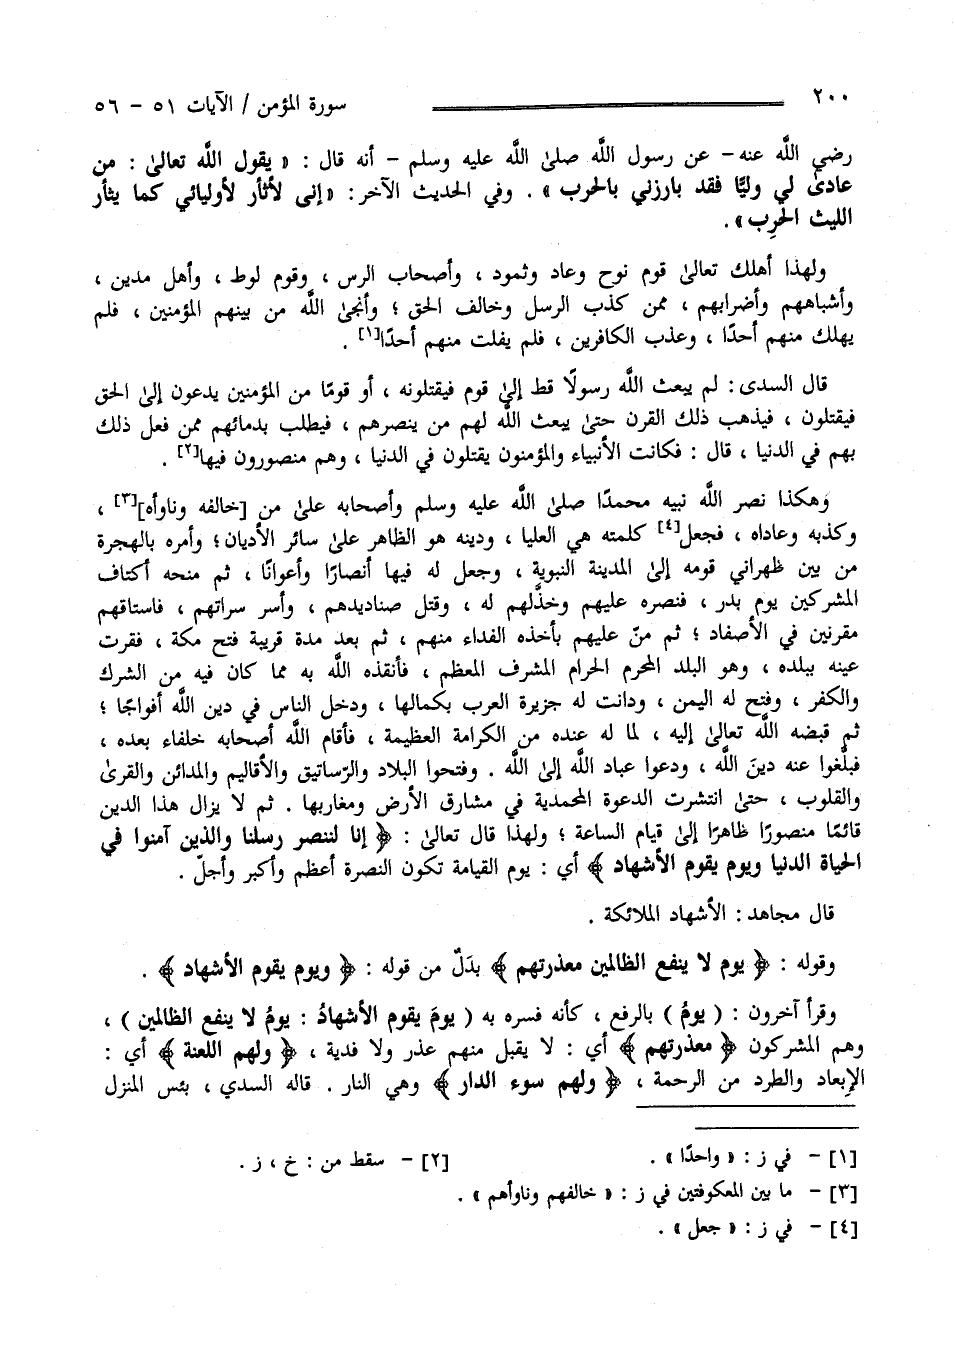 ٢٠٠ سورة المؤمن / الآيات ٥١ - ٥٦
رضي الله عنه - عن رسول الله صلىٰ الله عليه وسلم - أنه قال : « يقول الله تعالىٰ : من
عادىٰ لي وليًّا فقد بارزني بالحرب » . وفي الحديث الآخر : « إنى لأثأر لأوليائي كما يثأر
الليث الحرِب » .
ولهذا أهلك تعالىٰ قوم نوح وعاد وثمود ، وأصحاب الرس ، وقوم لوط ، وأهل مدين ،
وأشباههم وأضرابهم ، ممن كذب الرسل وخالف الحق ؛ وأنجىٰ الله من بينهم المؤمنين ، فلم
يهلك منهم أحدًا ، وعذب الكافرين ، فلم يفلت منهم أحدًا[١] .
قال السدى : لم يبعث الله رسولًا قط إلىٰ قوم فيقتلونه ، أو قومًا من المؤمنين يدعون إلىٰ الحق
فيقتلون ، فيذهب ذلك القرن حتىٰ يبعث الله لهم من ينصرهم ، فيطلب بدمائهم ممن فعل ذلك
بهم في الدنيا ، قال : فكانت الأنبياء والمؤمنون يقتلون في الدنيا ، وهم منصورون فيها[٢] .
وهكذا نصر الله نبيه محمدًا صلىٰ الله عليه وسلم وأصحابه علىٰ من [خالفه وناوأه][٣] ،
وكذبه وعاداه ، فجعل[٤] كلمته هي العليا ، ودينه هو الظاهر علىٰ سائر الأديان ؛ وأمره بالهجرة
من بين ظهراني قومه إلىٰ المدينة النبوية ، وجعل له فيها أنصارًا وأعوانًا ، ثم منحه أكتاف
المشركين يوم بدر ، فنصره عليهم وخذّلهم له ، وقتل صناديدهم ، وأسر سراتهم ، فاستاقهم
مقرنين في الأصفاد ؛ ثم منّ عليهم بأخذه الفداء منهم ، ثم بعد مدة قريبة فتح مكة ، فقرت
عينه ببلده ، وهو البلد المحرم الحرام المشرف المعظم ، فأنقذه الله به مما كان فيه من الشرك
والكفر ، وفتح له اليمن ، ودانت له جزيرة العرب بكمالها ، ودخل الناس في دين الله أفواجًا ؛
ثم قبضه الله تعالىٰ إليه ، لما له عنده من الكرامة العظيمة ، فأقام الله أصحابه خلفاء بعده ،
فبلّغوا عنه دينَ الله ، ودعوا عباد الله إلىٰ الله . وفتحوا البلاد والرّساتيق والأقاليم والمدائن والقرىٰ
والقلوب ، حتىٰ انتشرت الدعوة المحمدية في مشارق الأرض ومغاربها . ثم لا يزال هذا الدين
قائمًا منصورًا ظاهرًا إلىٰ قيام الساعة ؛ ولهذا قال تعالىٰ : ﴿ إنا لننصر رسلنا والذين آمنوا في
الحياة الدنيا ويوم يقوم الأشهاد ﴾ أي : يوم القيامة تكون النصرة أعظم وأكبر وأجلّ .
قال مجاهد : الأشهاد الملائكة .
وقوله : ﴿ يوم لا ينفع الظالمين معذرتهم ﴾ بدَلٌ من قوله : ﴿ ويوم يقوم الأشهاد ﴾ .
وقرأ آخرون : ( يومُ ) بالرفع ، كأنه فسره به ( يومَ يقوم الأشهادُ : يومُ لا ينفع الظالمين ) ،
وهم المشركون ﴿ معذرتهم ﴾ أي : لا يقبل منهم عذر ولا فدية ، ﴿ ولهم اللعنة ﴾ أي :
الإبعاد والطرد من الرحمة ، ﴿ ولهم سوء الدار ﴾ وهي النار . قاله السدي ، بئس المنزل
[١] - في ز : « واحدًا » . [٢] - سقط من : خ ، ز .
[٣] - ما بين المعكوفتين في ز : « خالفهم وناوأهم » .
[٤] - في ز : « جعل » .